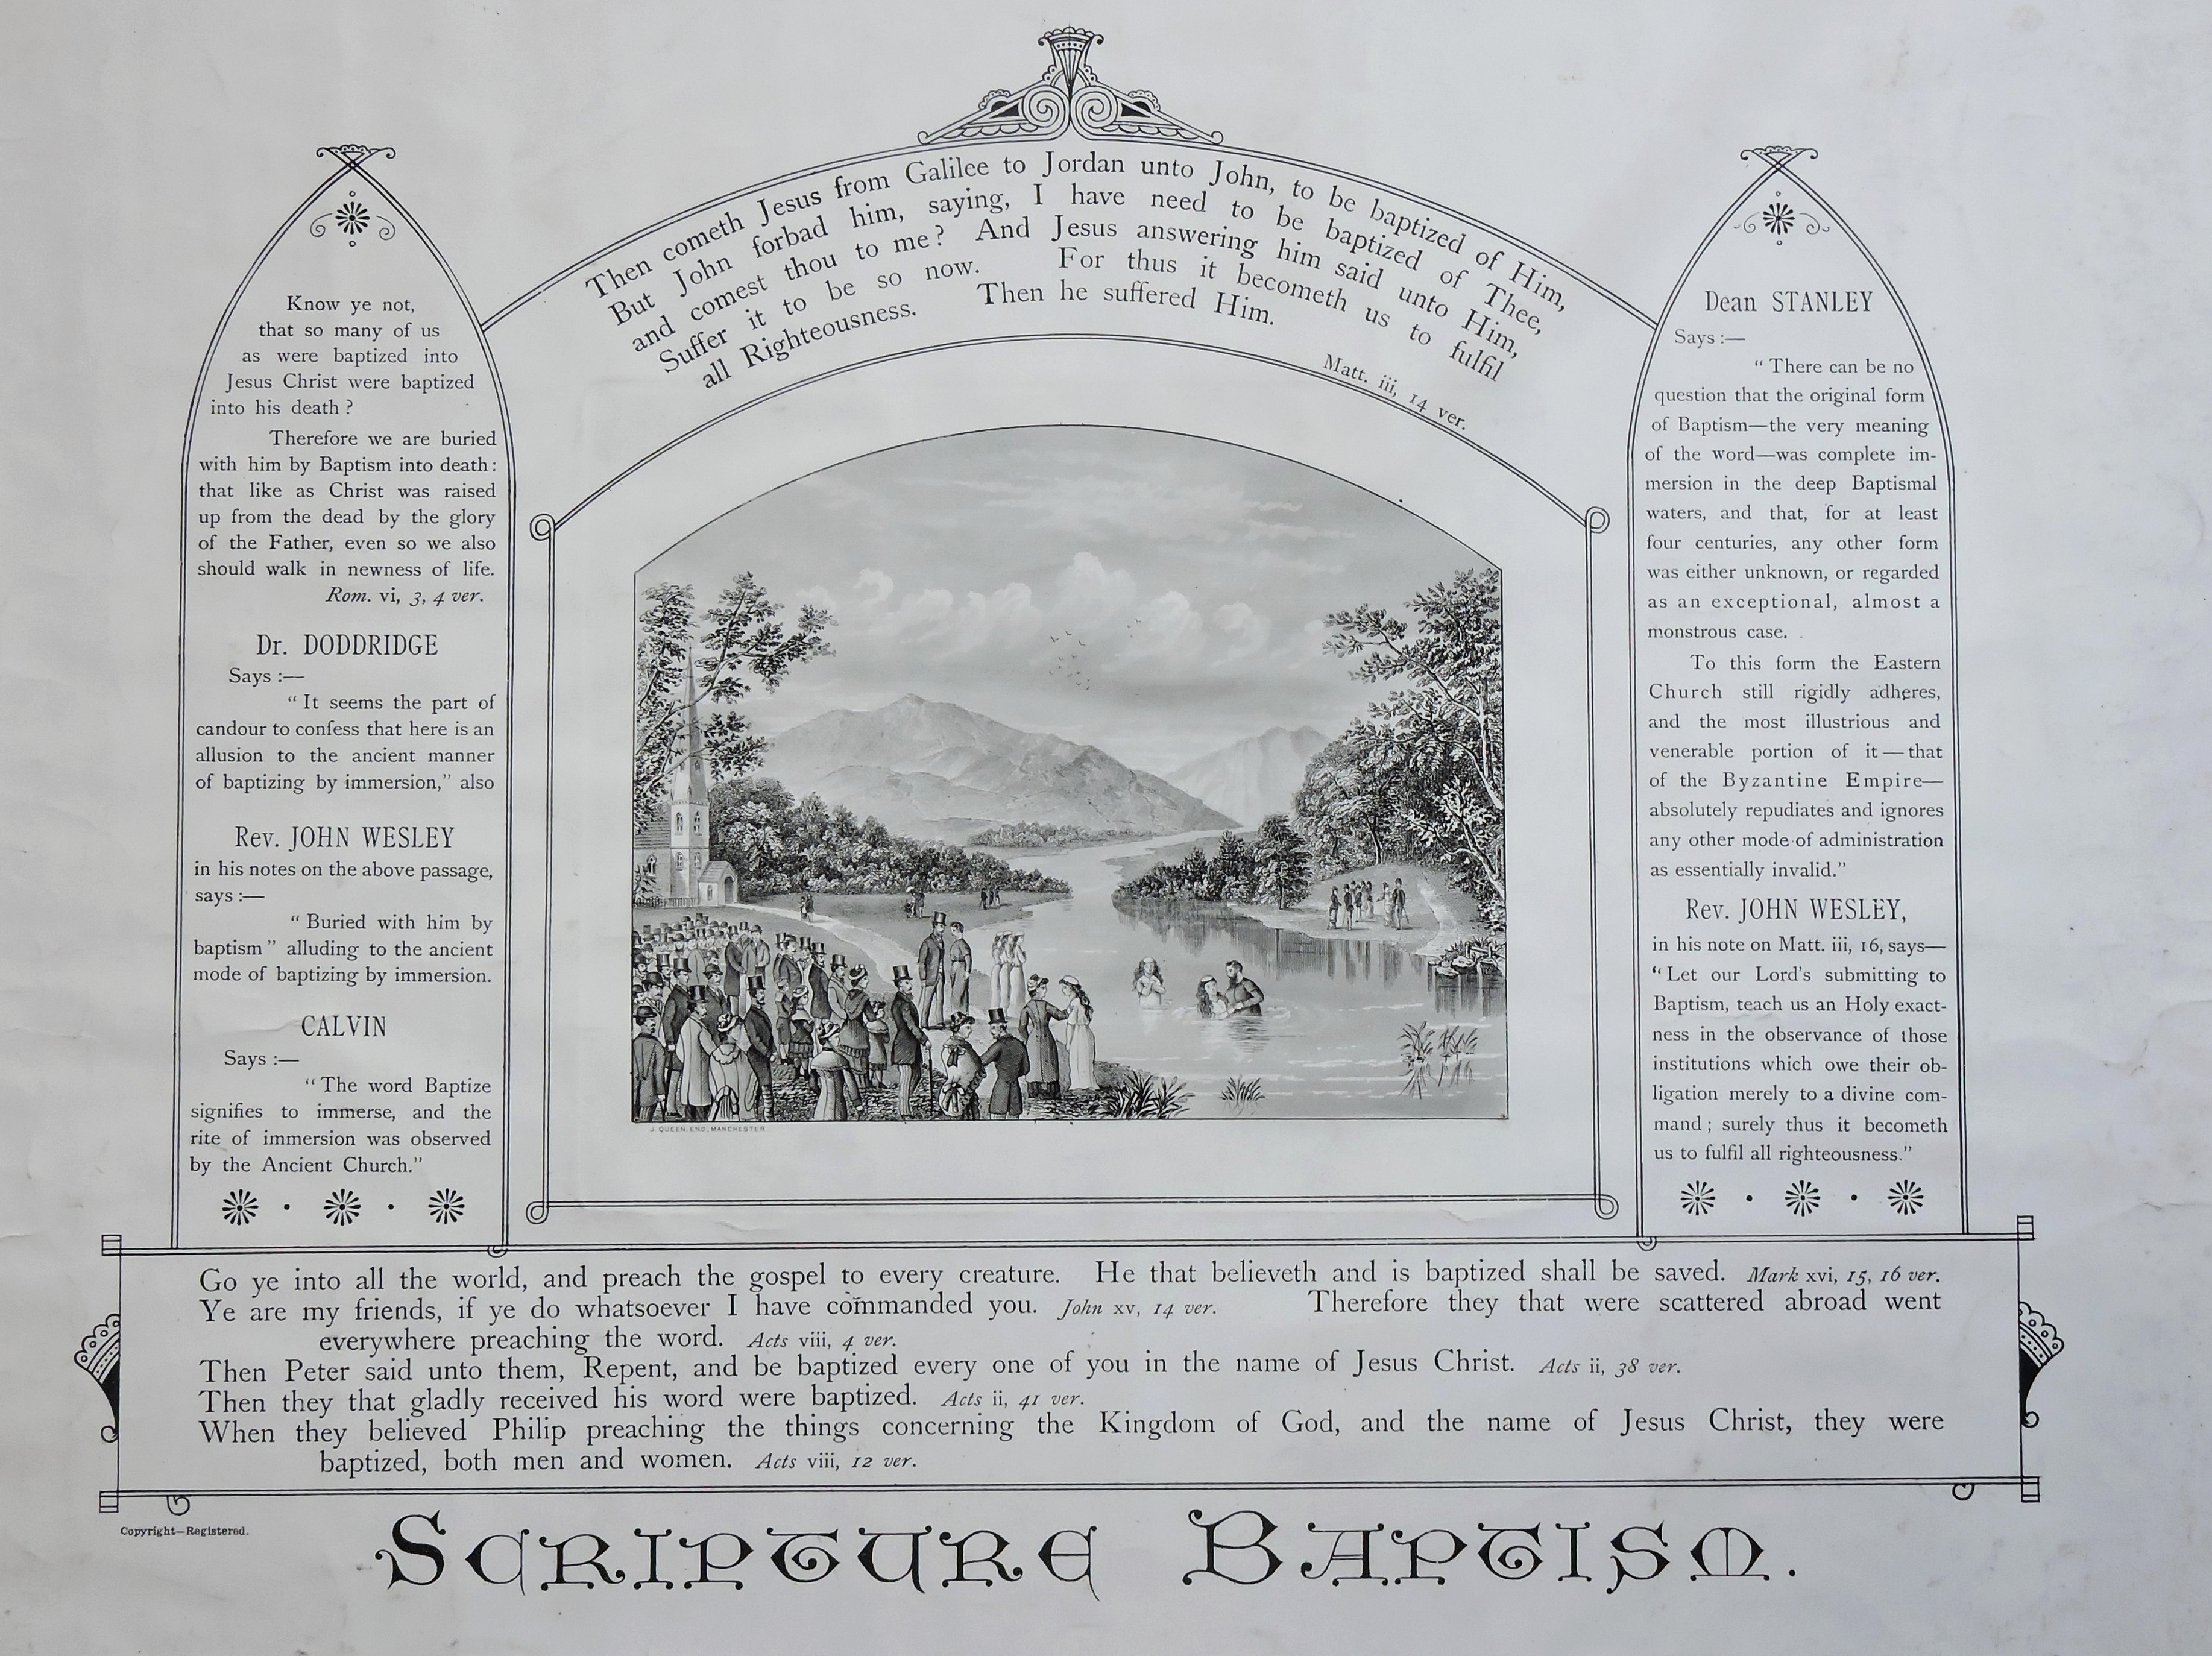 Then cometh Jesus from Galilee to Jordan unto John, to be baptized of Him,
But John forbad him, saying, I have need to be baptized of Thee,
and comest thou to me? And Jesus answering him said unto Him,
Suffer it to be so now. For thus it becometh us to fulfil
all Righteousness. Then he suffered Him.
Matt. iii, 14 ver.
Know ye not,
that so many of us
as were baptized into
Jesus Christ were baptized
into his death?
Therefore we are buried
with him by Baptism into death:
that like as Christ was raised
up from the dead by the glory
of the Father, even so we also
should walk in newness of life.
Rom. vi, 3, 4 ver.
Dr. DODDRIDGE
Says :—
“ It seems the part of
candour to confess that here is an
allusion to the ancient manner
of baptizing by immersion,” also
Rev. JOHN WESLEY
in his notes on the above passage,
says :—
“ Buried with him by
baptism ” alluding to the ancient
mode of baptizing by immersion.
CALVIN
Says :—
“ The word Baptize
signifies to immerse, and the
rite of immersion was observed
by the Ancient Church.”
J. QUEEN, ENG, MANCHESTER
Dean STANLEY
Says :—
“ There can be no
question that the original form
of Baptism—the very meaning
of the word—was complete im-
mersion in the deep Baptismal
waters, and that, for at least
four centuries, any other form
was either unknown, or regarded
as an exceptional, almost a
monstrous case.
To this form the Eastern
Church still rigidly adheres,
and the most illustrious and
venerable portion of it — that
of the Byzantine Empire—
absolutely repudiates and ignores
any other mode of administration
as essentially invalid.”
Rev. JOHN WESLEY,
in his note on Matt. iii, 16, says—
“ Let our Lord’s submitting to
Baptism, teach us an Holy exact-
ness in the observance of those
institutions which owe their ob-
ligation merely to a divine com-
mand ; surely thus it becometh
us to fulfil all righteousness.”
Go ye into all the world, and preach the gospel to every creature. He that believeth and is baptized shall be saved. Mark xvi, 15, 16 ver.
Ye are my friends, if ye do whatsoever I have commanded you. John xv, 14 ver. Therefore they that were scattered abroad went
everywhere preaching the word. Acts viii, 4 ver.
Then Peter said unto them, Repent, and be baptized every one of you in the name of Jesus Christ. Acts ii, 38 ver.
Then they that gladly received his word were baptized. Acts ii, 41 ver.
When they believed Philip preaching the things concerning the Kingdom of God, and the name of Jesus Christ, they were
baptized, both men and women. Acts viii, 12 ver.
Copyright—Registered.
SCRIPTURE BAPTISM.